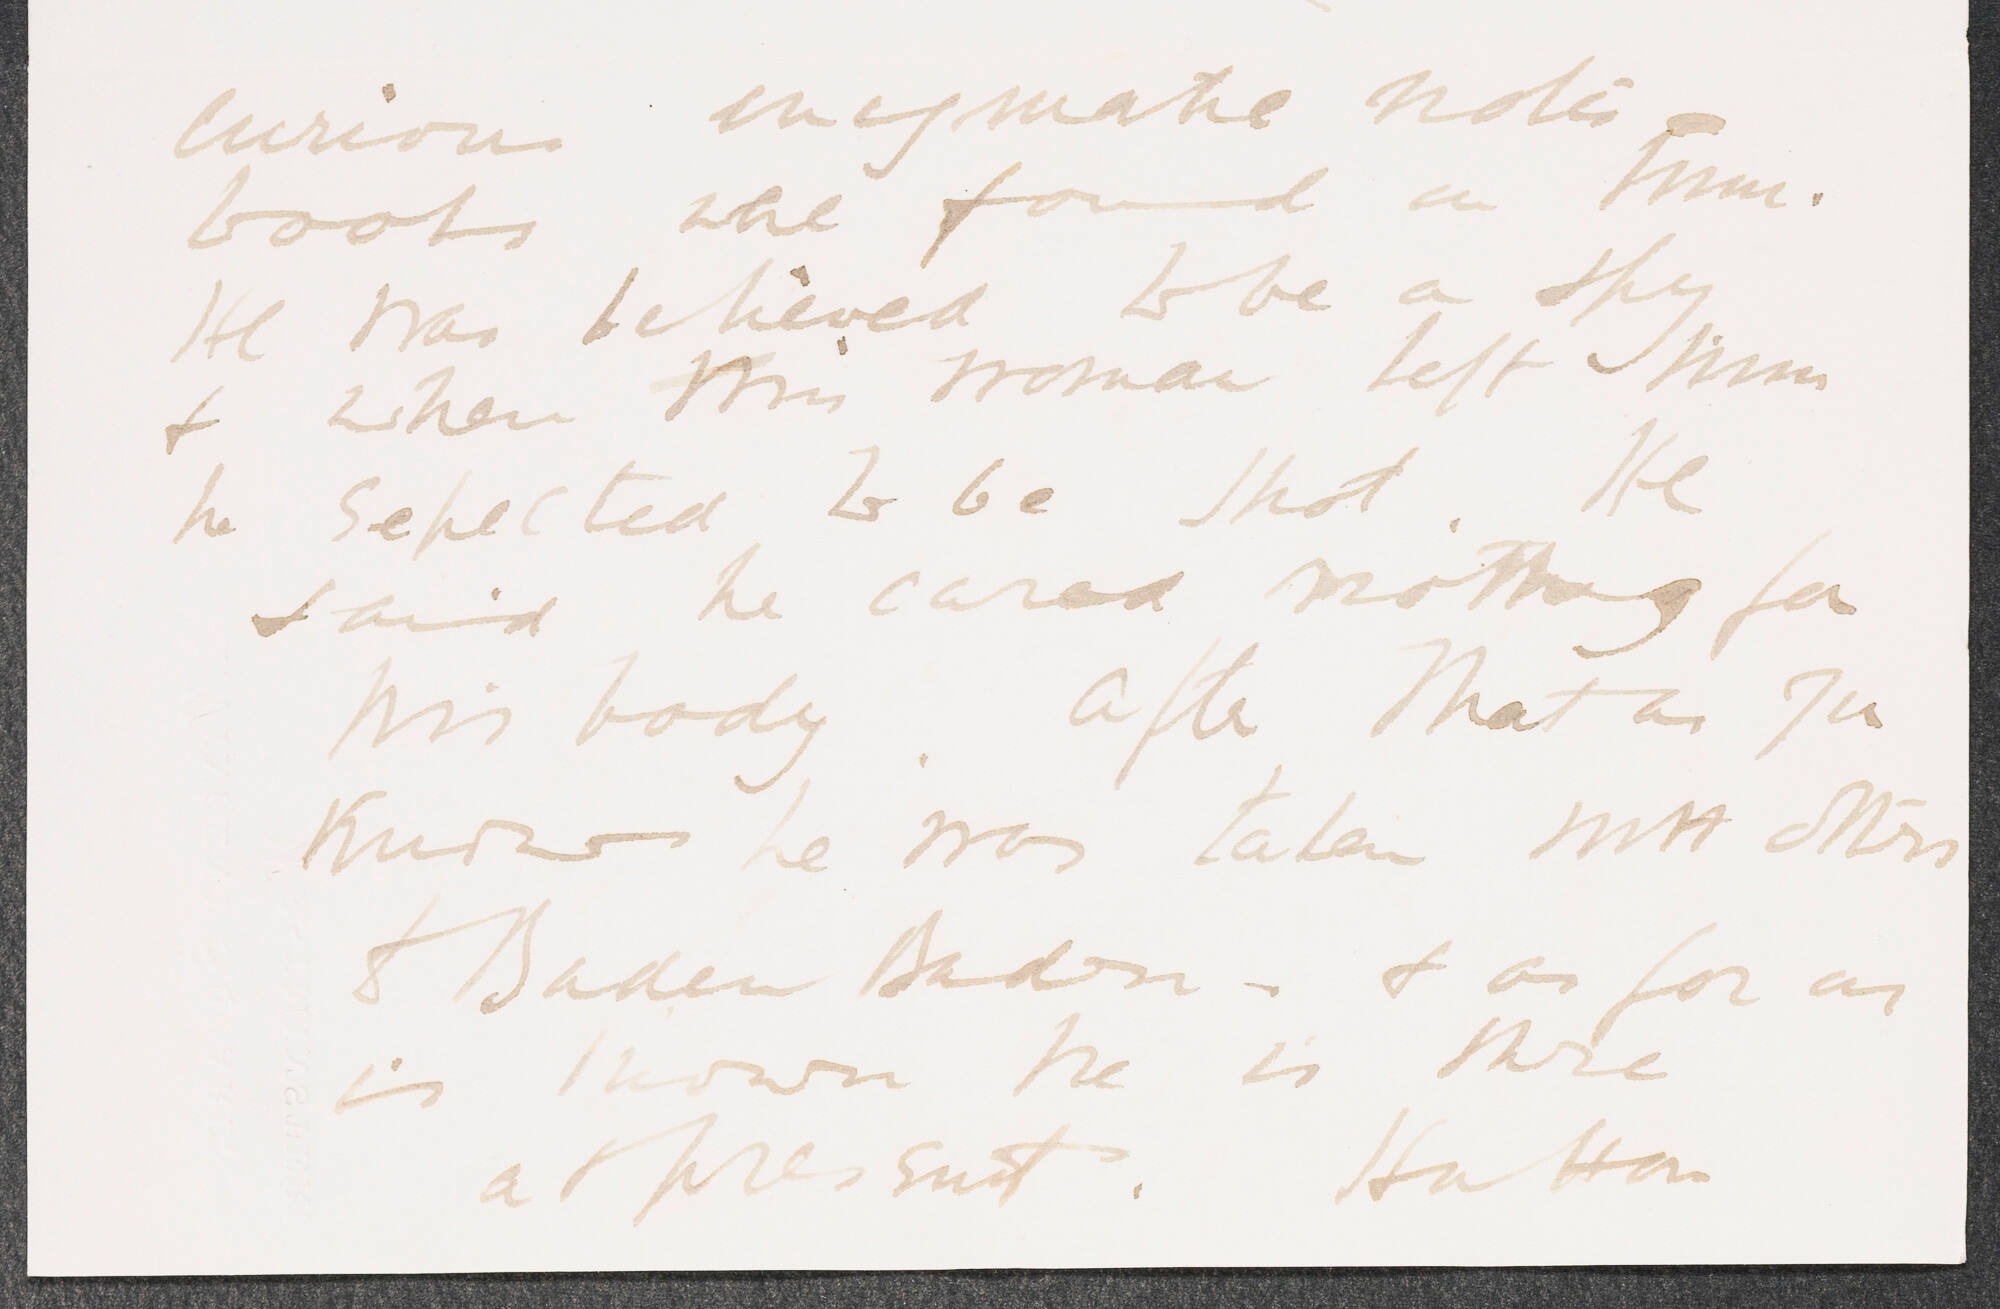 curious enigmatic note
books were found on him.
He was believed to be a spy
& when this woman left him
he expected to be shot. He
said he cared nothing for
his body. After that as you
know he was taken with others
to Baden Baden - & as far as
is known he is there
at present. Hutton